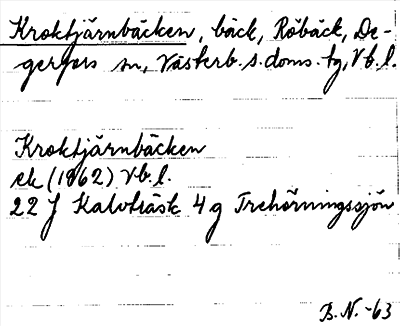 Kroktjärnbäcken, bäck, Röbäck, De-
gerfors sn, Västerb. s. doms. tg, Vb. l.
Kroktjärnbäcken
ek (1962) Vb. l.
22 J Kalvträsk 4 g Trehörningssjön
B.N. -63